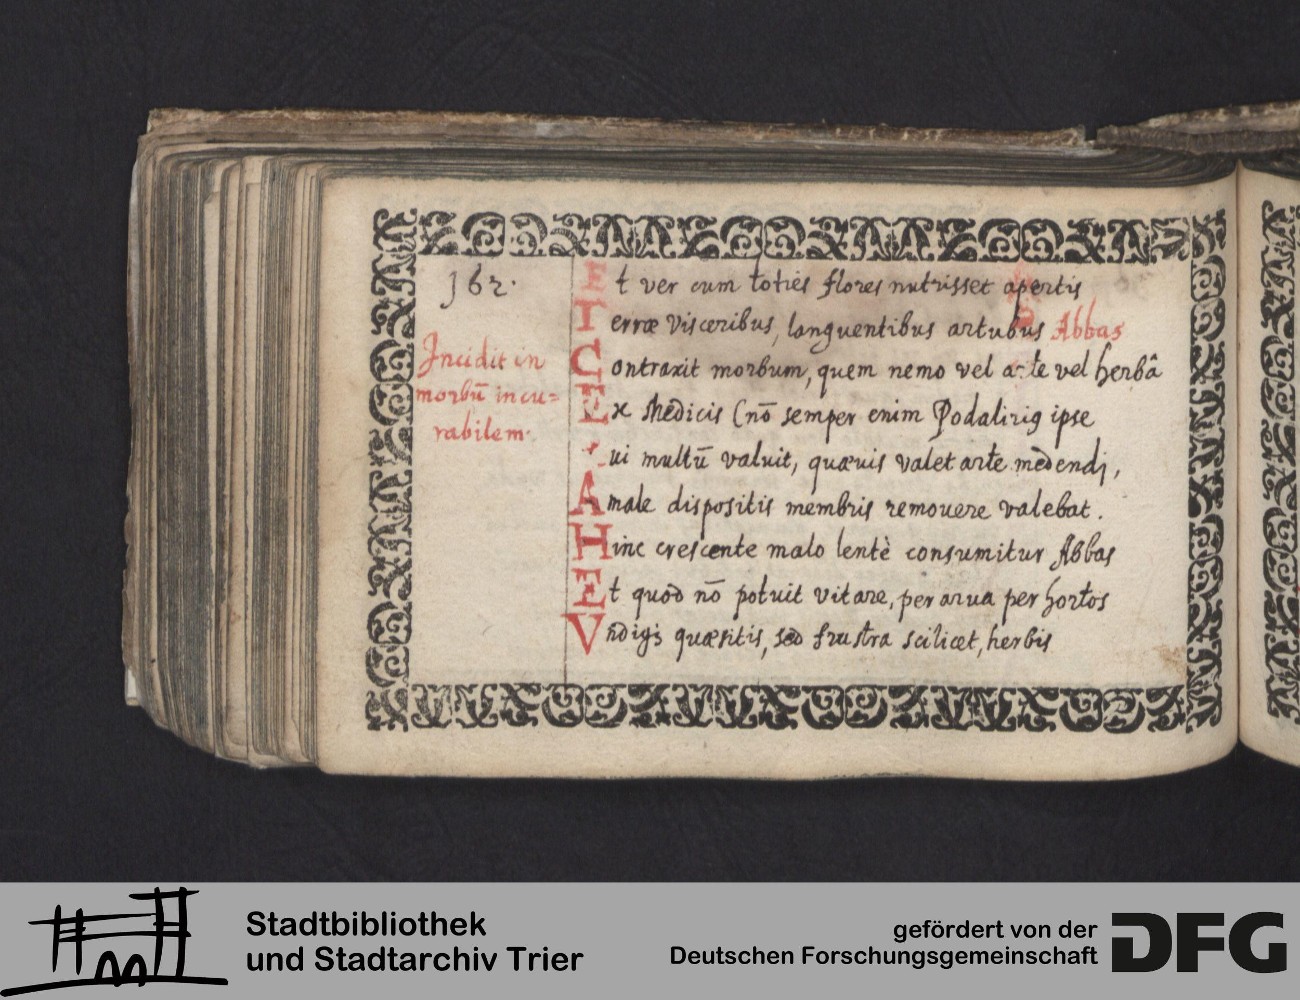 162.
Incidit in
morbū incu-
rabilem.
Et ver cum toties flores nutrisset apertis
Terræ visceribus, languentibus artubus Abbas
Contraxit morbum, quem nemo vel arte vel herbâ
Ex Medicis (nō semper enim Podalirig ipse
ui multū valuit, quæuis valet arte medendj,
Amale dispositis membris remouere valebat.
Hinc crescente malo lentè consumitur Abbas
Et quod nō potuit vitare, per arua per hortos
Vndigs quæsitis, sed frustra scilicet, herbis
Stadtbibliothek
und Stadtarchiv Trier
gefördert von der
Deutschen Forschungsgemeinschaft
DFG